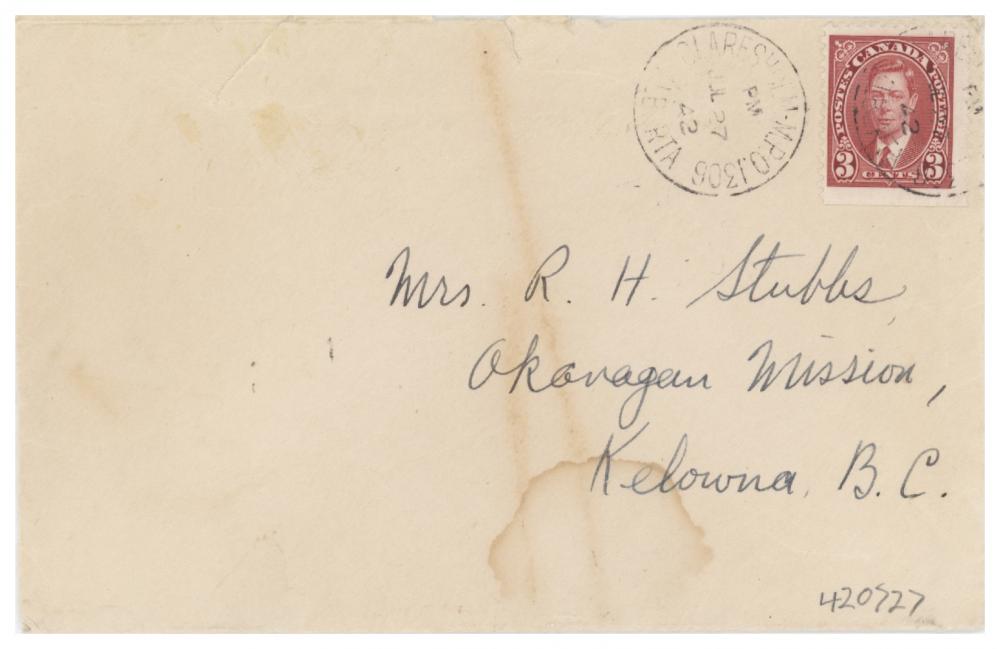 CLARESHOLM-M.P.O.1306
PM
JUL 27
42
POSTES CANADA POSTAGE
3 CENTS 3
PM
42
Mrs. R. H. Stubbs,
Okanagan Mission,
Kelowna, B. C.
420727